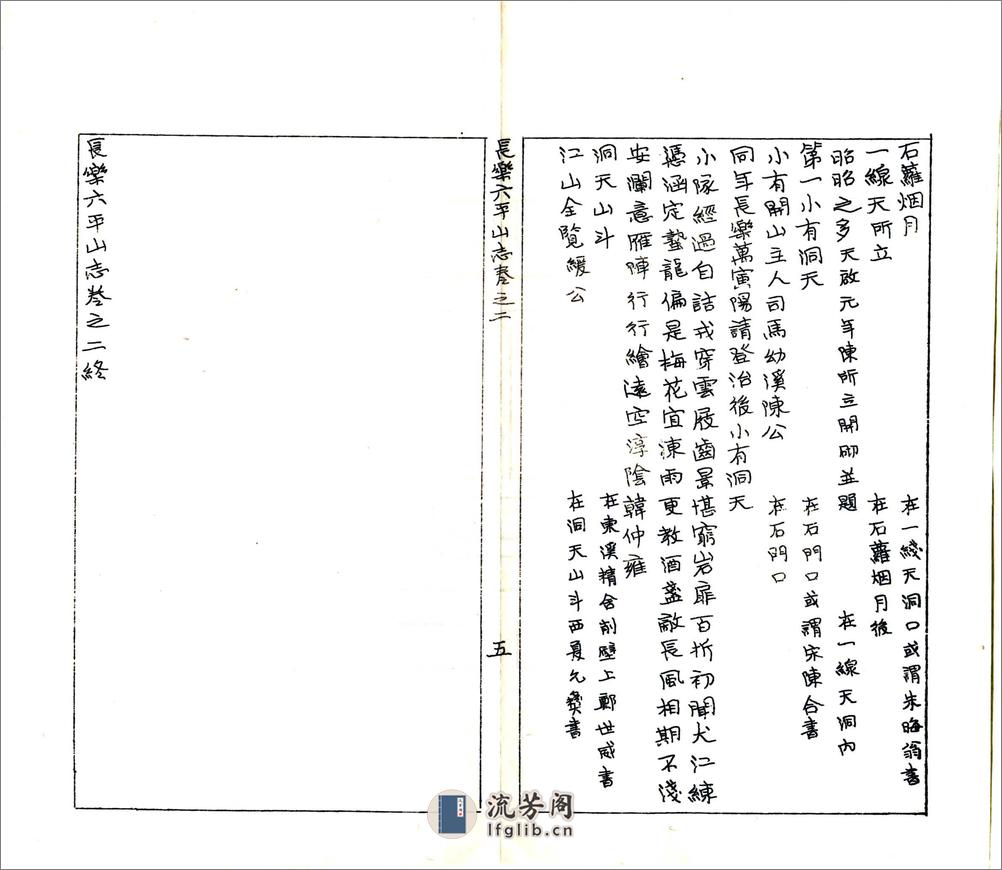 石蘿烟月　在一綫天洞口或謂朱晦翁書
一線天所立　在石蘿烟月後
昭昭之多天啟元年陳所立開砌並題　在一線天洞內
第一小有洞天　在石門口或謂宋陳合書
小有開山主人司馬幼溪陳公　在石門口
同年長樂萬寅陽請登治後小有洞天
小隊經過自詰戎穿雲屐齒景堪窮岩扉百折初聞犬江練
憑涵定蟄龍偏是梅花宜凍雨更教酒盞敵長風相期不淺
安瀾意雁陣行行繪遠空淳陰韓仲雍
洞天山斗　在東溪精舍削壁上鄭世威書
江山全覽緩公　在洞天山斗西夏允彝書
長樂六平山志卷之二
五
長樂六平山志卷之二終
流芳阁
lfglib.cn